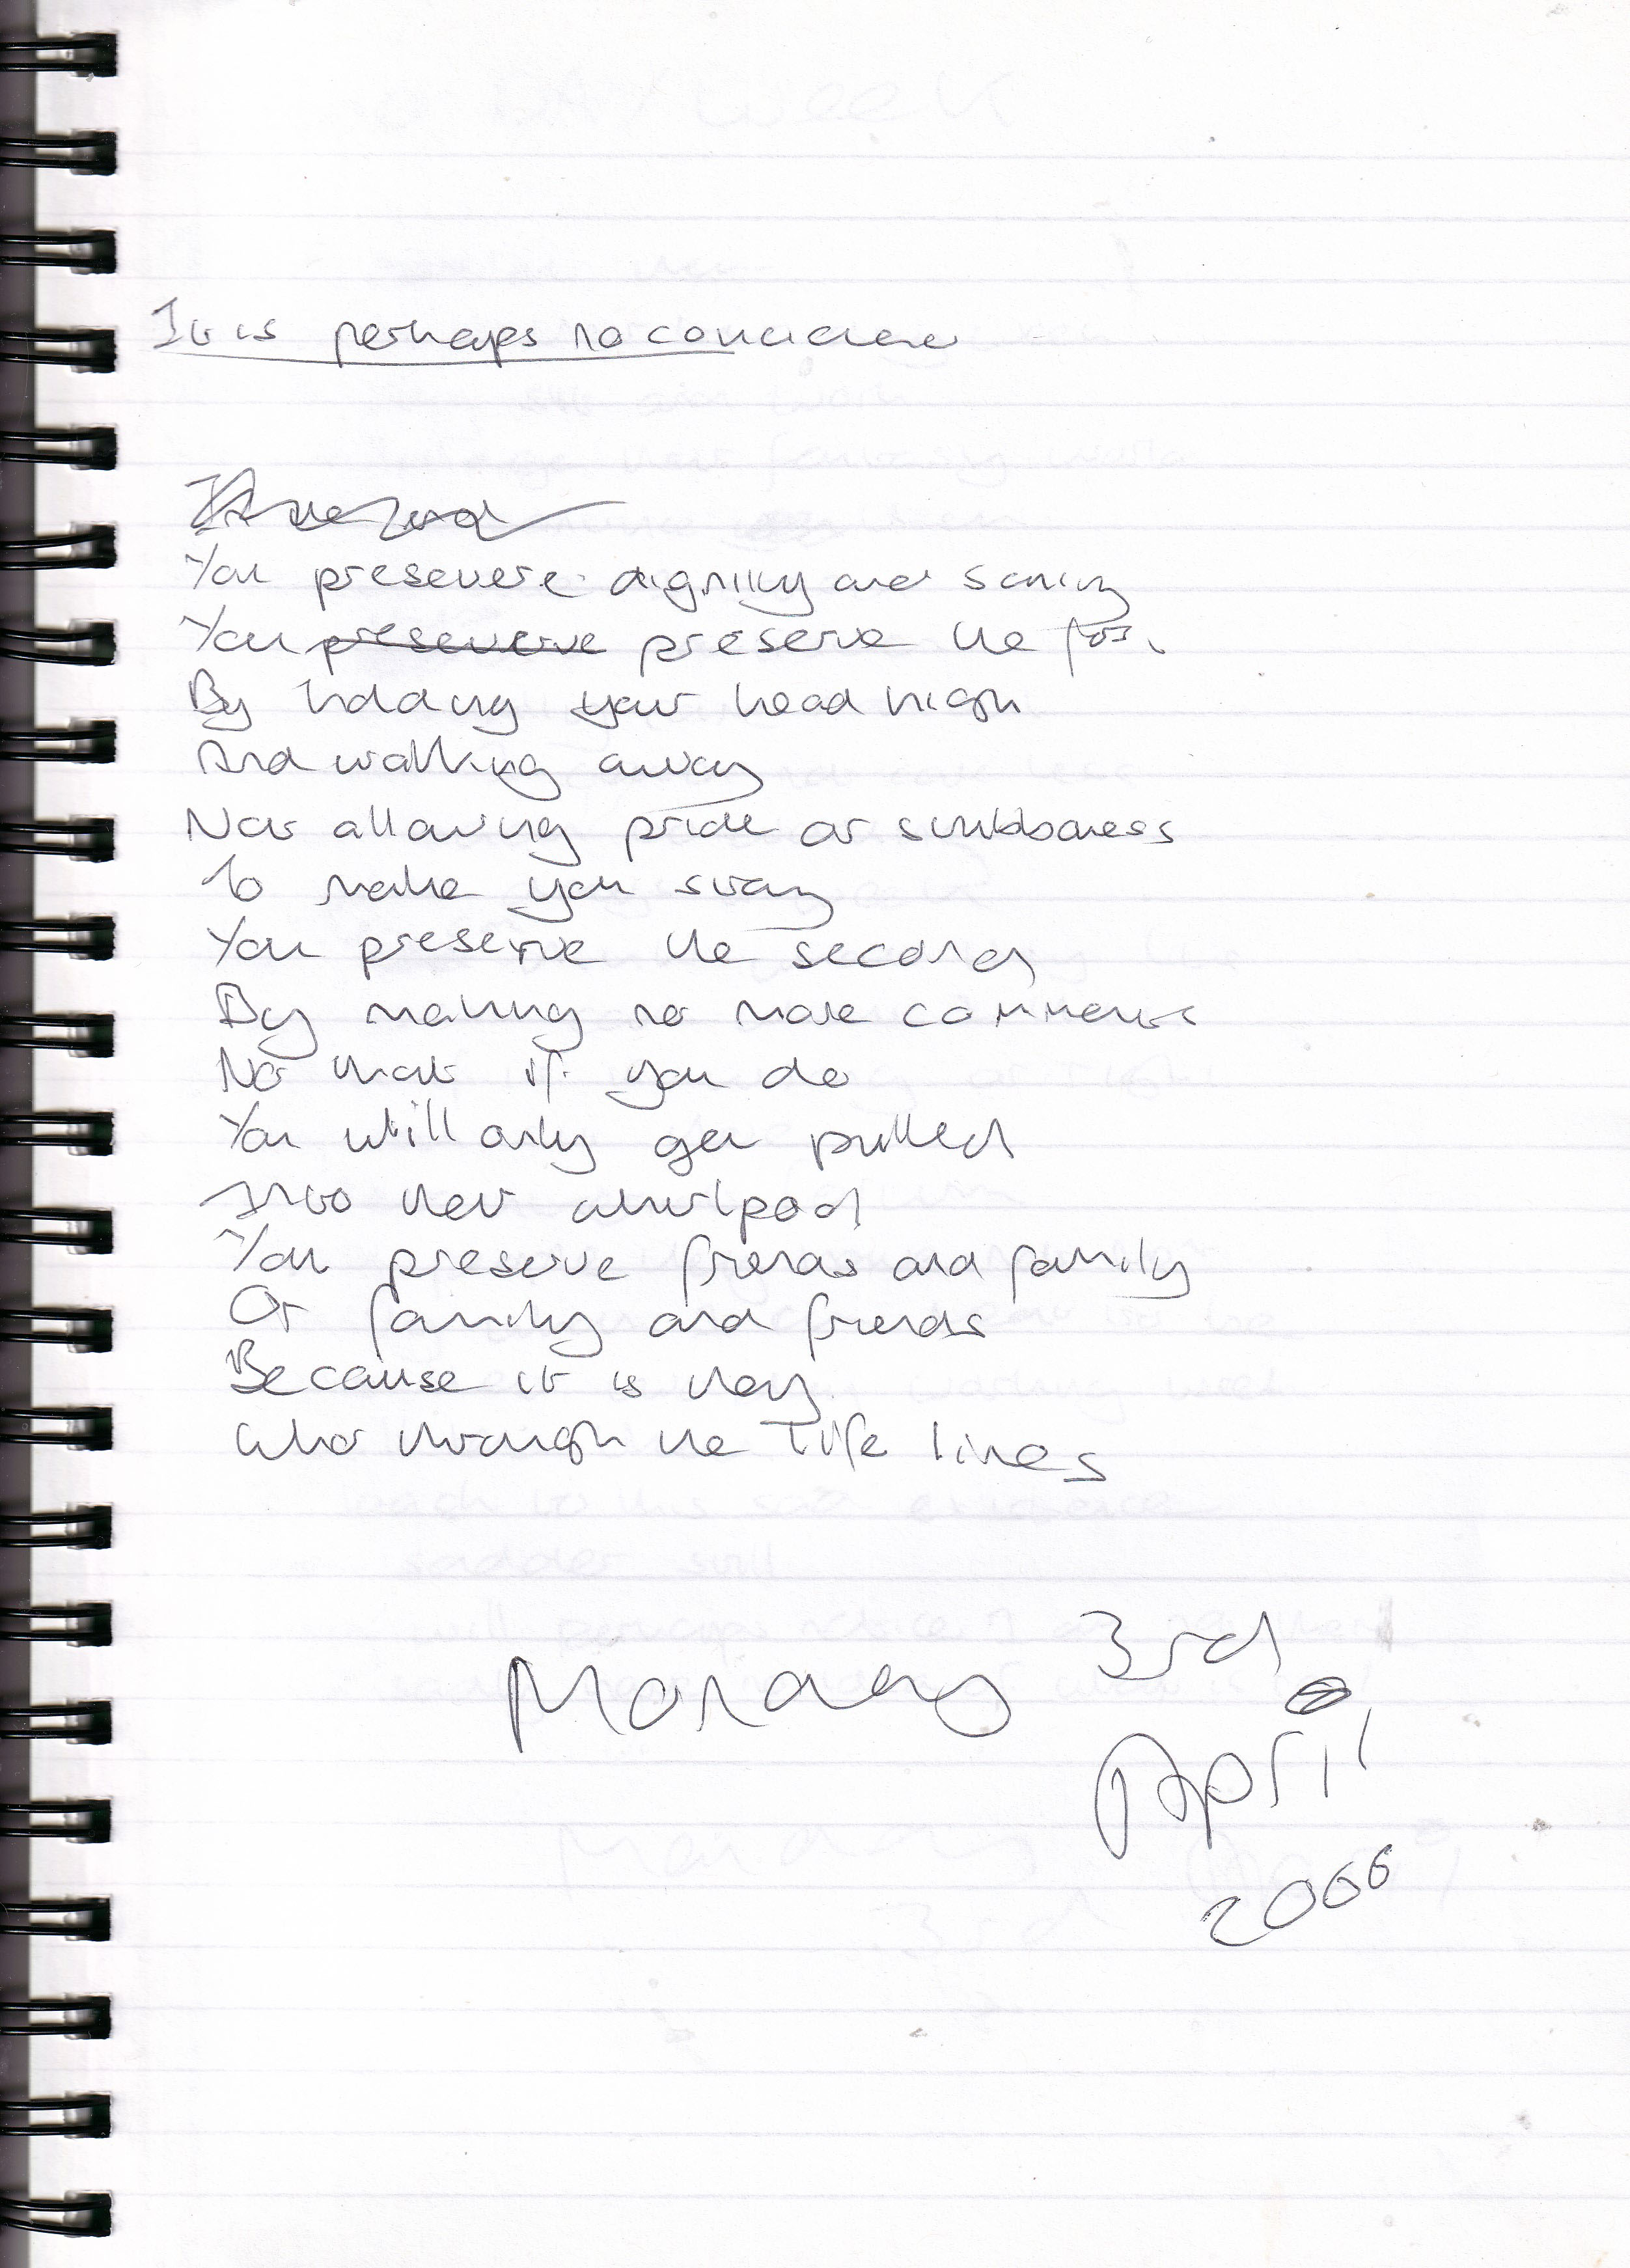 It is perhaps no concidence
You presevere dignity and sanity
You preseverve preserve the first
By holding your head high
And walking away
Not allowing pride or stubboness
To make you stay
You preserve the second
By making no more comments
No that if you do
You will only get pulled
Into their whirlpool
You preserve friends and family
Or family and friends
Because it is they
Who through the life lines
Monday 3rd
April
2006